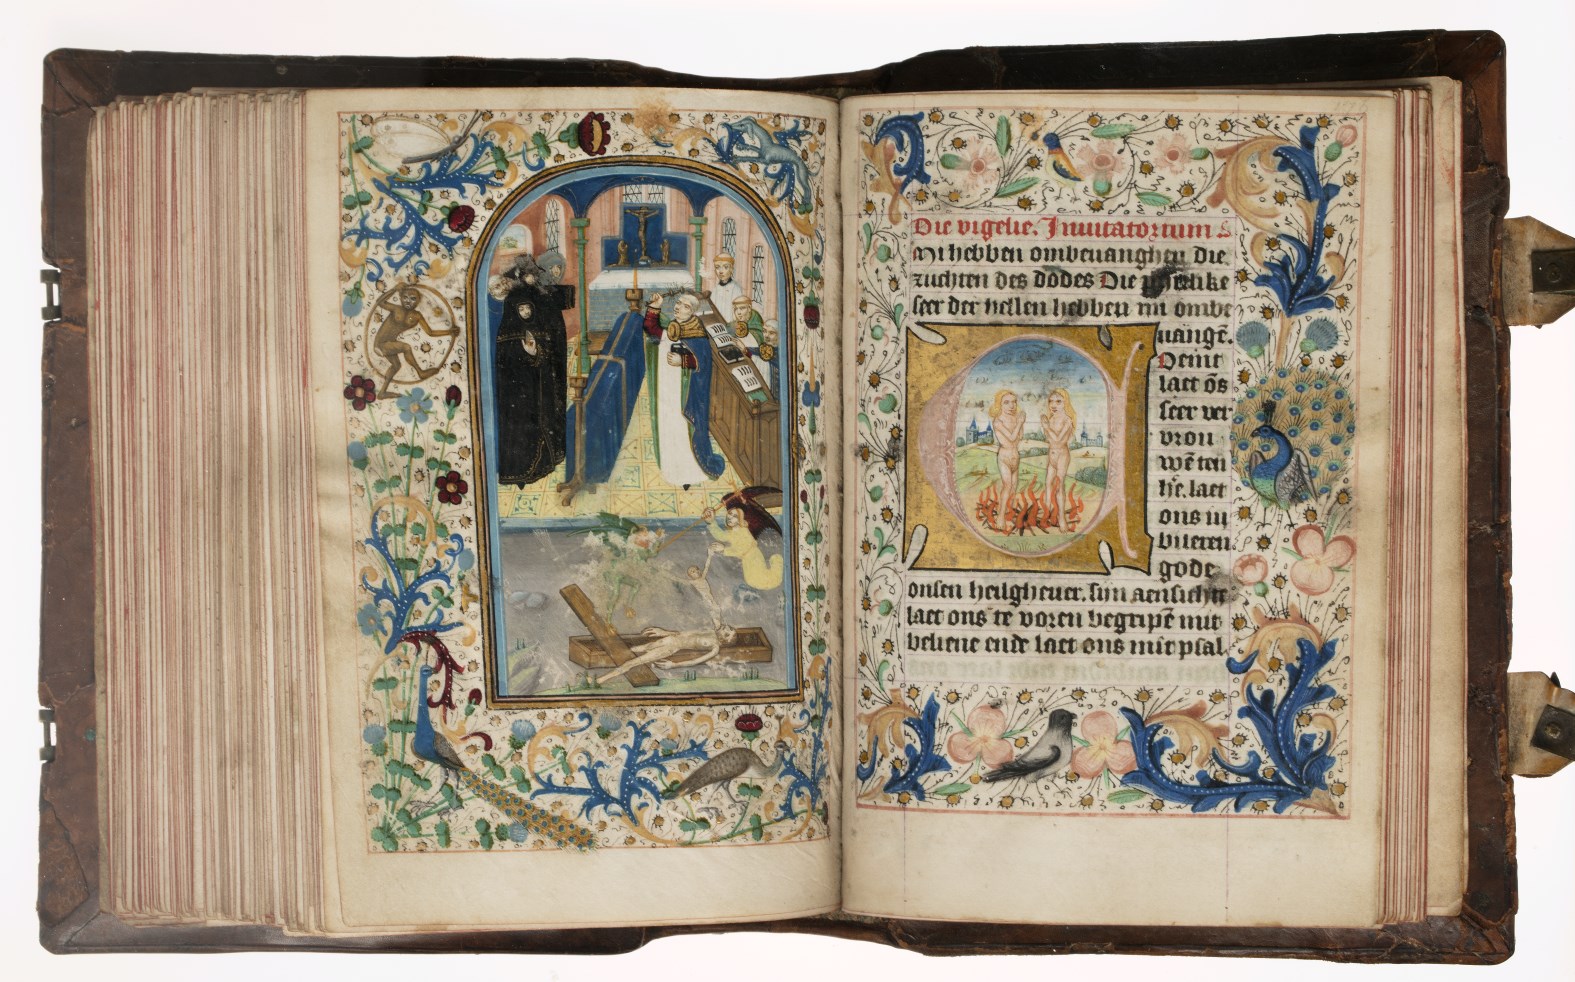 Die vigelie. Inuitatorium
Mi hebben ombeuanghen die
zuchten des dodes Die
seer der hellen hebben mi ombe
uangē.
Comt
laet ōs
seer ver
vrou
wē ten
laet
ons in
vueren
gode
onsen heilgheuer. sijn aensichte
laet ons te voren begripē mit
beliene ende laet ons mit psal